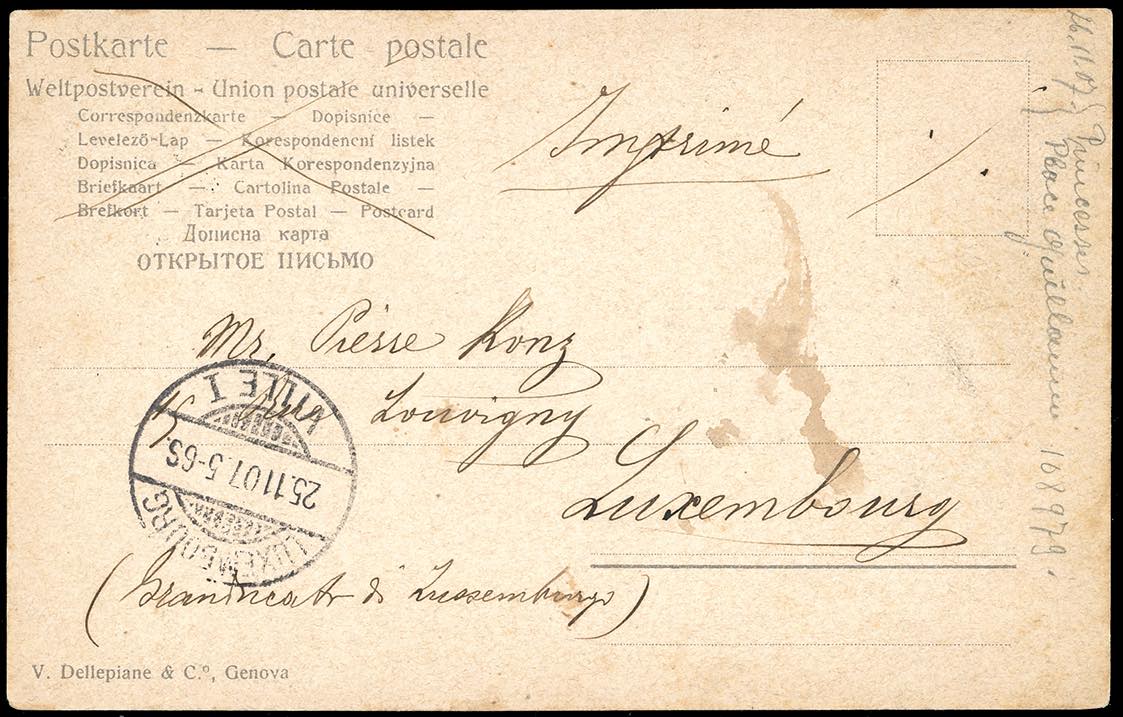 Postkarte — Carte postale
Weltpostverein - Union postale universelle
Correspondenzkarte — Dopisnice —
Levelező-Lap — Korespondencní listek
Dopisnica — Karta Korespondenzyjna
Briefkaart — Cartolina Postale —
Brefkort — Tarjeta Postal — Postcard
Дописна карта
ОТКРЫТОЕ ПИСЬМО
Imprimé
Mr. Pierre Konz
Rue Louvigny
Luxembourg
(Granducato di Lussemburgo)
LUXEMBOURG
25.11 07. 5-6S
VILLE I
V. Dellepiane & C.º, Genova
26.11.07 } Princesse
Place Guillaume 108979.